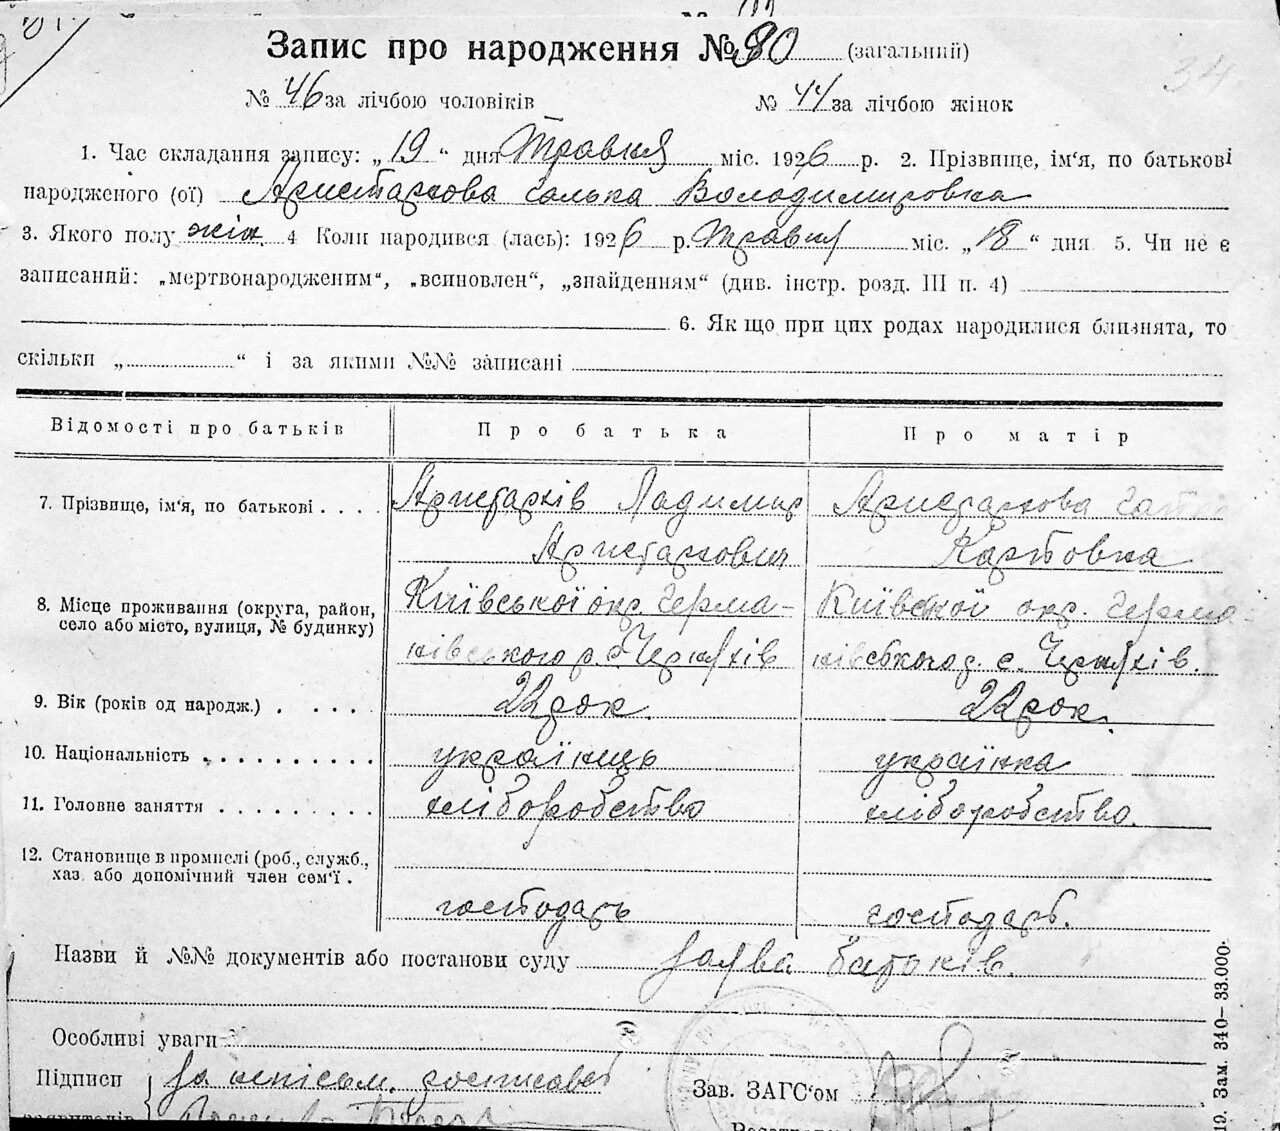 Запис про народження № 90 (загальний)
34
№ 46 за лічбою чоловіків № 44 за лічбою жінок
1. Час складання запису: „19“ дня Травня міс. 1926 р. 2. Прізвище, ім‘я, по батькові
народженого (ої) Аристархова Галька Володимировна
3. Якого полу жін. 4 Коли народився (лась): 1926 р. Травня міс. „18“ дня 5. Чи не є
записаний: „мертвонародженим“, „всиновлен“, „знайденням“ (див. інстр. розд. III п. 4)
6. Якщо при цих родах народилися близнята, то
скільки „ “ і за якими №№ записані
Відомості про батьків Про батька Про матір
7. Прізвище, ім‘я, по батькові . . . . Аристархів Ладимир Аристархова
Аристархович Карповна
8. Місце проживання (округа, район, Київської окр. Герма- Київської окр. Герма-
село або місто, вулиця, № будинку) ківського р. с. Черняхів ківського р. с. Черняхів.
9. Вік (років од народж.) . . . . . 22 рок. 22 рок.
10. Національність . . . . . . . . . . українець українка
11. Головне заняття . . . . . . . . хліборобство хліборобство.
12. Становище в промислі (роб., служб.,
хаз. або допомічний член сем‘ї . господарь господарь.
Назви й №№ документів або постанови суду Заява батьків.
Особливі уваги
Підписи За неписьм. росписавсь
Зав. ЗАГС‘ом
19. Зам. 340–33.000.